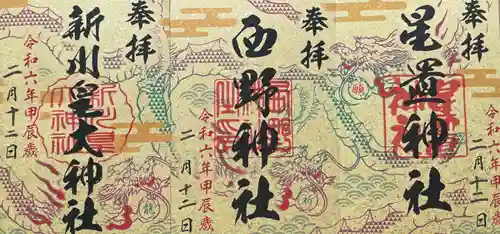 奉拝
星置神社
令和六年甲辰歳
二月十二日
願
奉拝
西野神社
令和六年甲辰歳
二月十二日
祈
奉拝
新川皇大神社
令和六年甲辰歳
二月十二日
龍